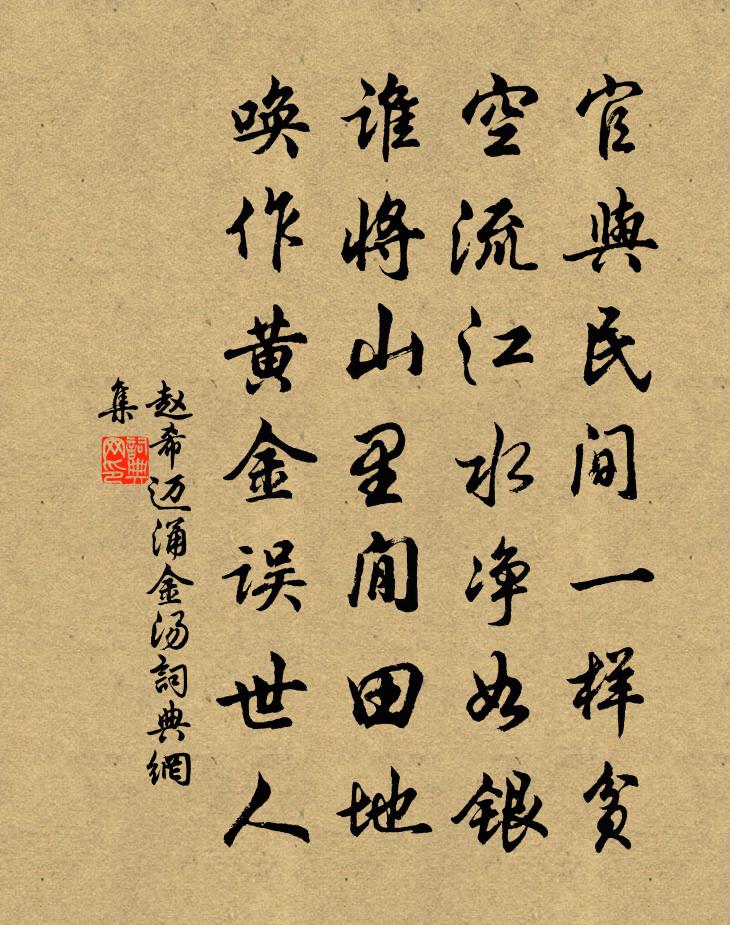 官與民间一样贫
空流江水净如银
谁将山里閒田地
唤作黄金误世人
赵希迈涌金汤詞典網
集
詞典
网印